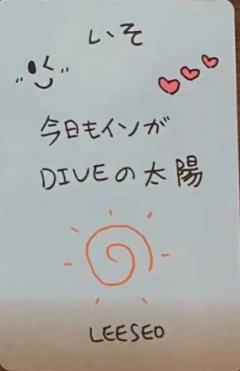 いそ
今日もイソが
DIVEの太陽
LEESEO